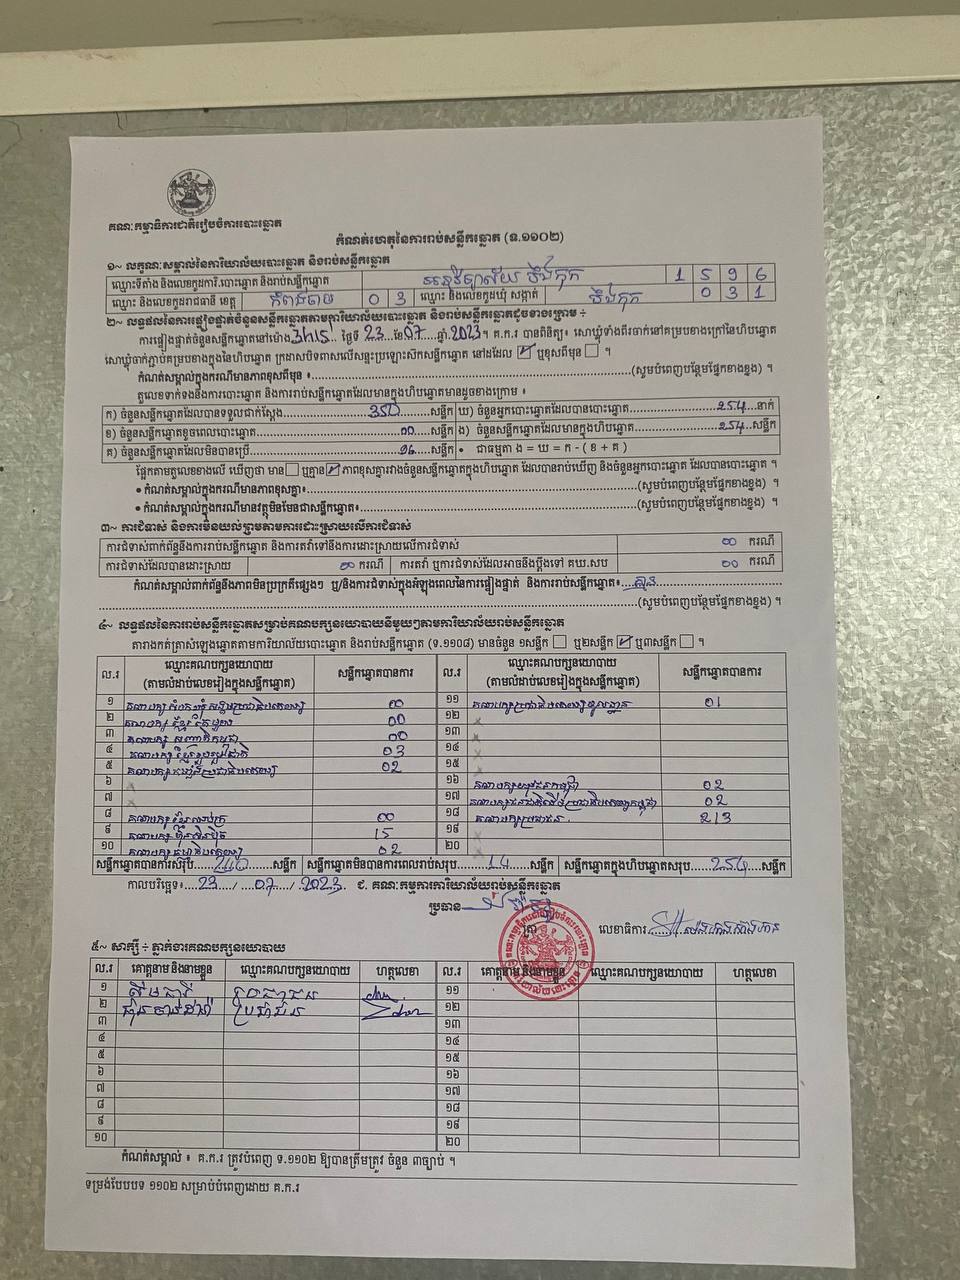 គណៈកម្មាធិការជាតិរៀបចំការបោះឆ្នោត
កំណត់ហេតុនៃការរាប់សន្លឹកឆ្នោត (ទ.១១០២)
១~ លក្ខណៈសម្គាល់នៃការិយាល័យបោះឆ្នោត និងរាប់សន្លឹកឆ្នោត
ឈ្មោះទីតាំង និងលេខកូដការិ.បោះឆ្នោត និងរាប់សន្លឹកឆ្នោត អនុវិទ្យាល័យ បឹងកុក 1 5 9 6
ឈ្មោះ និងលេខកូដរាជធានី ខេត្ត កំពង់ចាម 0 3 ឈ្មោះ និងលេខកូដឃុំ សង្កាត់ បឹងកុក 0 3 1
២~ លទ្ធផលនៃការផ្ទៀងផ្ទាត់ចំនួនសន្លឹកឆ្នោតតាមការិយាល័យបោះឆ្នោត និងរាប់សន្លឹកឆ្នោតដូចខាងក្រោម ÷
ការផ្ទៀងផ្ទាត់ចំនួនសន្លឹកឆ្នោតនៅម៉ោង 3h15 ថ្ងៃទី 23 ខែ 07 ឆ្នាំ 2023 ។ គ.ក.រ បានពិនិត្យ៖ សោឃ្លុំទាំងពីរចាក់នៅគម្របខាងក្រៅនៃហិបឆ្នោត
សោឃ្លុំចាក់ភ្ជាប់គម្របខាងក្នុងនៃហិបឆ្នោត ក្រដាសបិទពាសលើសន្ទះប្រឡោះសិកសន្លឹកឆ្នោត នៅដដែល ☑ ឬខុសពីមុន ☐ ។
កំណត់សម្គាល់ក្នុងករណីមានភាពខុសពីមុន ៖ (សូមបំពេញបន្ថែមផ្នែកខាងខ្នង) ។
តួលេខទាក់ទងនឹងការបោះឆ្នោត និងការរាប់សន្លឹកឆ្នោតដែលមានក្នុងហិបឆ្នោតមានដូចខាងក្រោម ៖
ក) ចំនួនសន្លឹកឆ្នោតដែលបានទទួលជាក់ស្ដែង 350 សន្លឹក ឃ) ចំនួនអ្នកបោះឆ្នោតដែលបានបោះឆ្នោត 254 នាក់
ខ) ចំនួនសន្លឹកឆ្នោតខូចពេលបោះឆ្នោត 00 សន្លឹក ង) ចំនួនសន្លឹកឆ្នោតដែលមានក្នុងហិបឆ្នោត 254 សន្លឹក
គ) ចំនួនសន្លឹកឆ្នោតដែលមិនបានប្រើ 96 សន្លឹក • ជាធម្មតា ង = ឃ = ក - ( ខ + គ )
ផ្អែកតាមតួលេខខាងលើ ឃើញថា មាន ☐ ឬគ្មាន ☑ ភាពខុសគ្នារវាងចំនួនសន្លឹកឆ្នោតក្នុងហិបឆ្នោត ដែលបានរាប់ឃើញ និងចំនួនអ្នកបោះឆ្នោត ដែលបានបោះឆ្នោត ។
• កំណត់សម្គាល់ក្នុងករណីមានភាពខុសគ្នា៖ (សូមបំពេញបន្ថែមផ្នែកខាងខ្នង) ។
• កំណត់សម្គាល់ក្នុងករណីមានវត្ថុមិនមែនជាសន្លឹកឆ្នោត៖ (សូមបំពេញបន្ថែមផ្នែកខាងខ្នង) ។
៣~ ការជំទាស់ និងការមិនយល់ព្រមតាមការដោះស្រាយលើការជំទាស់
ការជំទាស់ពាក់ព័ន្ធនឹងការរាប់សន្លឹកឆ្នោត និងការតវ៉ាទៅនឹងការដោះស្រាយលើការជំទាស់ 00 ករណី
ការជំទាស់ដែលបានដោះស្រាយ 00 ករណី ការតវ៉ា ឬការជំទាស់ដែលអាចនឹងប្ដឹងទៅ គឃ.សប 00 ករណី
កំណត់សម្គាល់ពាក់ព័ន្ធនឹងភាពមិនប្រក្រតីផ្សេងៗ ឬ/និងការជំទាស់ក្នុងអំឡុងពេលនៃការផ្ទៀងផ្ទាត់ និងការរាប់សន្លឹកឆ្នោត៖ គ្មាន
(សូមបំពេញបន្ថែមផ្នែកខាងខ្នង) ។
៤~ លទ្ធផលនៃការរាប់សន្លឹកឆ្នោតសម្រាប់គណបក្សនយោបាយនីមួយៗតាមការិយាល័យរាប់សន្លឹកឆ្នោត
តារាងកត់ត្រាសំឡេងឆ្នោតតាមការិយាល័យបោះឆ្នោត និងរាប់សន្លឹកឆ្នោត (ទ.១១០៨) មានចំនួន ១សន្លឹក ☐ ឬ២សន្លឹក ☑ ឬ៣សន្លឹក ☐ ។
ល.រ ឈ្មោះគណបក្សនយោបាយ (តាមលំដាប់លេខរៀងក្នុងសន្លឹកឆ្នោត) សន្លឹកឆ្នោតបានការ ល.រ ឈ្មោះគណបក្សនយោបាយ (តាមលំដាប់លេខរៀងក្នុងសន្លឹកឆ្នោត) សន្លឹកឆ្នោតបានការ
១ 00 ១១ 01
២ 00 ១២ x
៣ គណបក្ស សញ្ជាតិកម្ពុជា 00 ១៣ x
៤ គណបក្ស ខ្មែររួបរួមជាតិ 03 ១៤ x
៥ 02 ១៥ x
៦ x ១៦ គណបក្សយុវជនកម្ពុជា 02
៧ x ១៧ 02
៨ 00 ១៨ គណបក្សប្រជាជន 213
៩ គណបក្ស ហ៊្វុនស៊ិនប៉ិច 15 ១៩ x
១០ 02 ២០ x
សន្លឹកឆ្នោតបានការសរុប 240 សន្លឹក សន្លឹកឆ្នោតមិនបានការពេលរាប់សរុប 14 សន្លឹក សន្លឹកឆ្នោតក្នុងហិបឆ្នោតសរុប 254 សន្លឹក
កាលបរិច្ឆេទ៖ 23 / 07 / 2023 ជ. គណៈកម្មការការិយាល័យរាប់សន្លឹកឆ្នោត
ប្រធាន
ត្រា
លេខាធិការ
៥~ សាក្សី ÷ ភ្នាក់ងារគណបក្សនយោបាយ
ល.រ គោត្តនាម និងនាមខ្លួន ឈ្មោះគណបក្សនយោបាយ ហត្ថលេខា ល.រ គោត្តនាម និងនាមខ្លួន ឈ្មោះគណបក្សនយោបាយ ហត្ថលេខា
១ ប្រជាជន ១១
២ ប្រជាជន ១២
៣ ១៣
៤ ១៤
៥ ១៥
៦ ១៦
៧ ១៧
៨ ១៨
៩ ១៩
១០ ២០
កំណត់សម្គាល់ ៖ គ.ក.រ ត្រូវបំពេញ ទ.១១០២ ឱ្យបានត្រឹមត្រូវ ចំនួន ៣ច្បាប់ ។
ទម្រង់បែបបទ ១១០២ សម្រាប់បំពេញដោយ គ.ក.រ